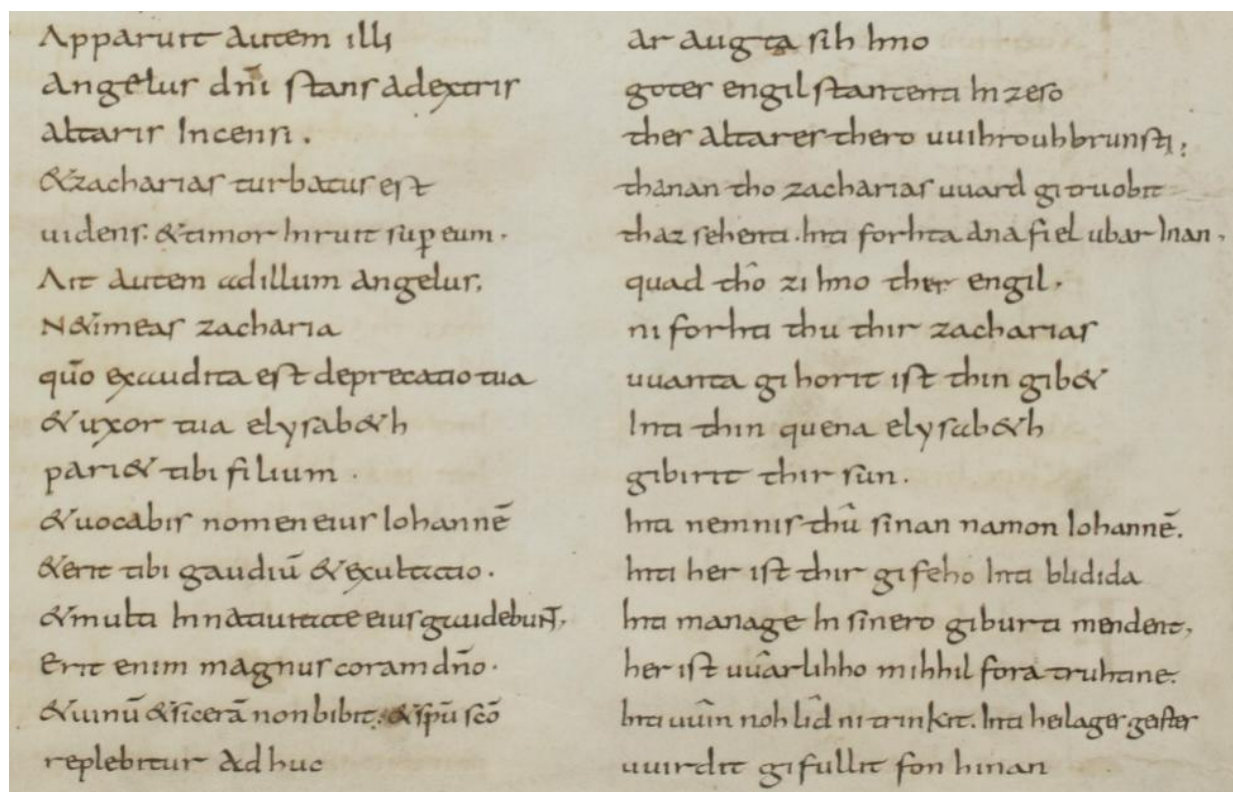 Apparuit autem illi
angelus dn̄i stans adextris
altaris Incensi.
&zacharias turbatus est
uidens. &timor Inruit suꝑ eum.
Ait autem adillum angelus,
N&imeas zacharia
quō exaudita est deprecatio tua
&uxor tua elysab&h
pari& tibi filium.
&uocabis nomen eius Iohannē
&erit tibi gaudiū &exultatio.
&multi Innatiuitate eius gaudebunt,
Erit enim magnus coram dn̄o.
&uinū &sicerā non bibit. &spū scō
replebitur Adhuc
ar augta sih Imo
gotes engil stantenti In zeso
thes altares thero uuihrouhbrunsti;
thanan tho zacharias uuard gitruobit
thaz sehenti. Inti forhta ana fiel ubar Inan.
quad thô zi Imo ther engil.
ni forhti thu thir zacharias
uuanta gihorit ist thin gib&
Inti thin quena elysab&h
gibirit thir sun.
Inti nemnis thû sînan namon Iohannē.
Inti her ist thir gifeho Inti blidida
Inti manage In sînero giburti mendent,
her ist uuârlihho mihhil fora truhtine.
Inti uuîn noh lîd ni trinkit. Inti heilages geistes
uuirdit gifullit fon hinan